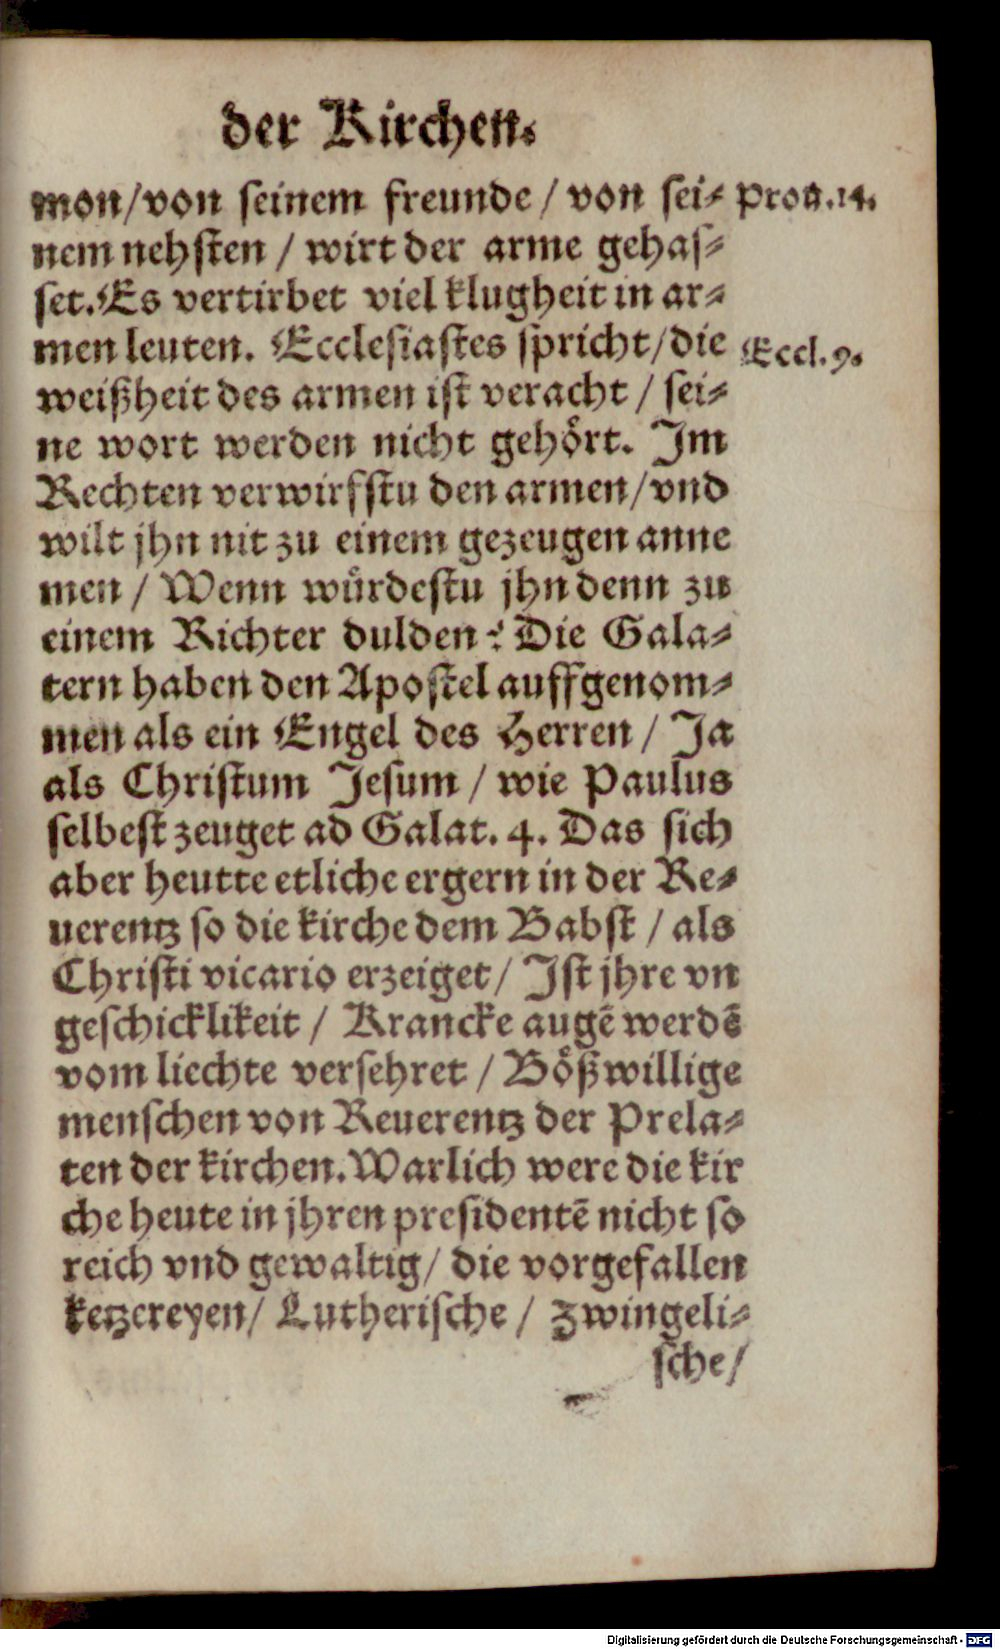 der Kirchen.
mon/von seinem freunde / von sei⸗ Prou.14.
nem nehsten / wirt der arme gehas⸗
set.Es vertirbet viel klugheit in ar⸗
men leuten. Ecclesiastes spricht/die Eccl.9.
weißheit des armen ist veracht / sei⸗
ne wort werden nicht gehoͤrt. Im
Rechten verwirfstu den armen/vnd
wilt jhn nit zu einem gezeugen anne
men / Wenn wuͤrdestu jhn denn zu
einem Richter dulden? Die Gala⸗
tern haben den Apostel auffgenom⸗
men als ein Engel des Herren / Ja
als Christum Jesum / wie Paulus
selbest zeuget ad Galat. 4. Das sich
aber heutte etliche ergern in der Re⸗
uerentz so die kirche dem Babst / als
Christi vicario erzeiget/ Ist jhre vn
geschicklikeit / Krancke augē werdē
vom liechte versehret / Boͤßwillige
menschen von Reuerentz der Prela⸗
ten der kirchen.Warlich were die kir
che heute in jhren presidentē nicht so
reich vnd gewaltig/ die vorgefallen
ketzereyen/ Lutherische / Zwingeli⸗
sche/
Digitalisierung gefördert durch die Deutsche Forschungsgemeinschaft - DFG